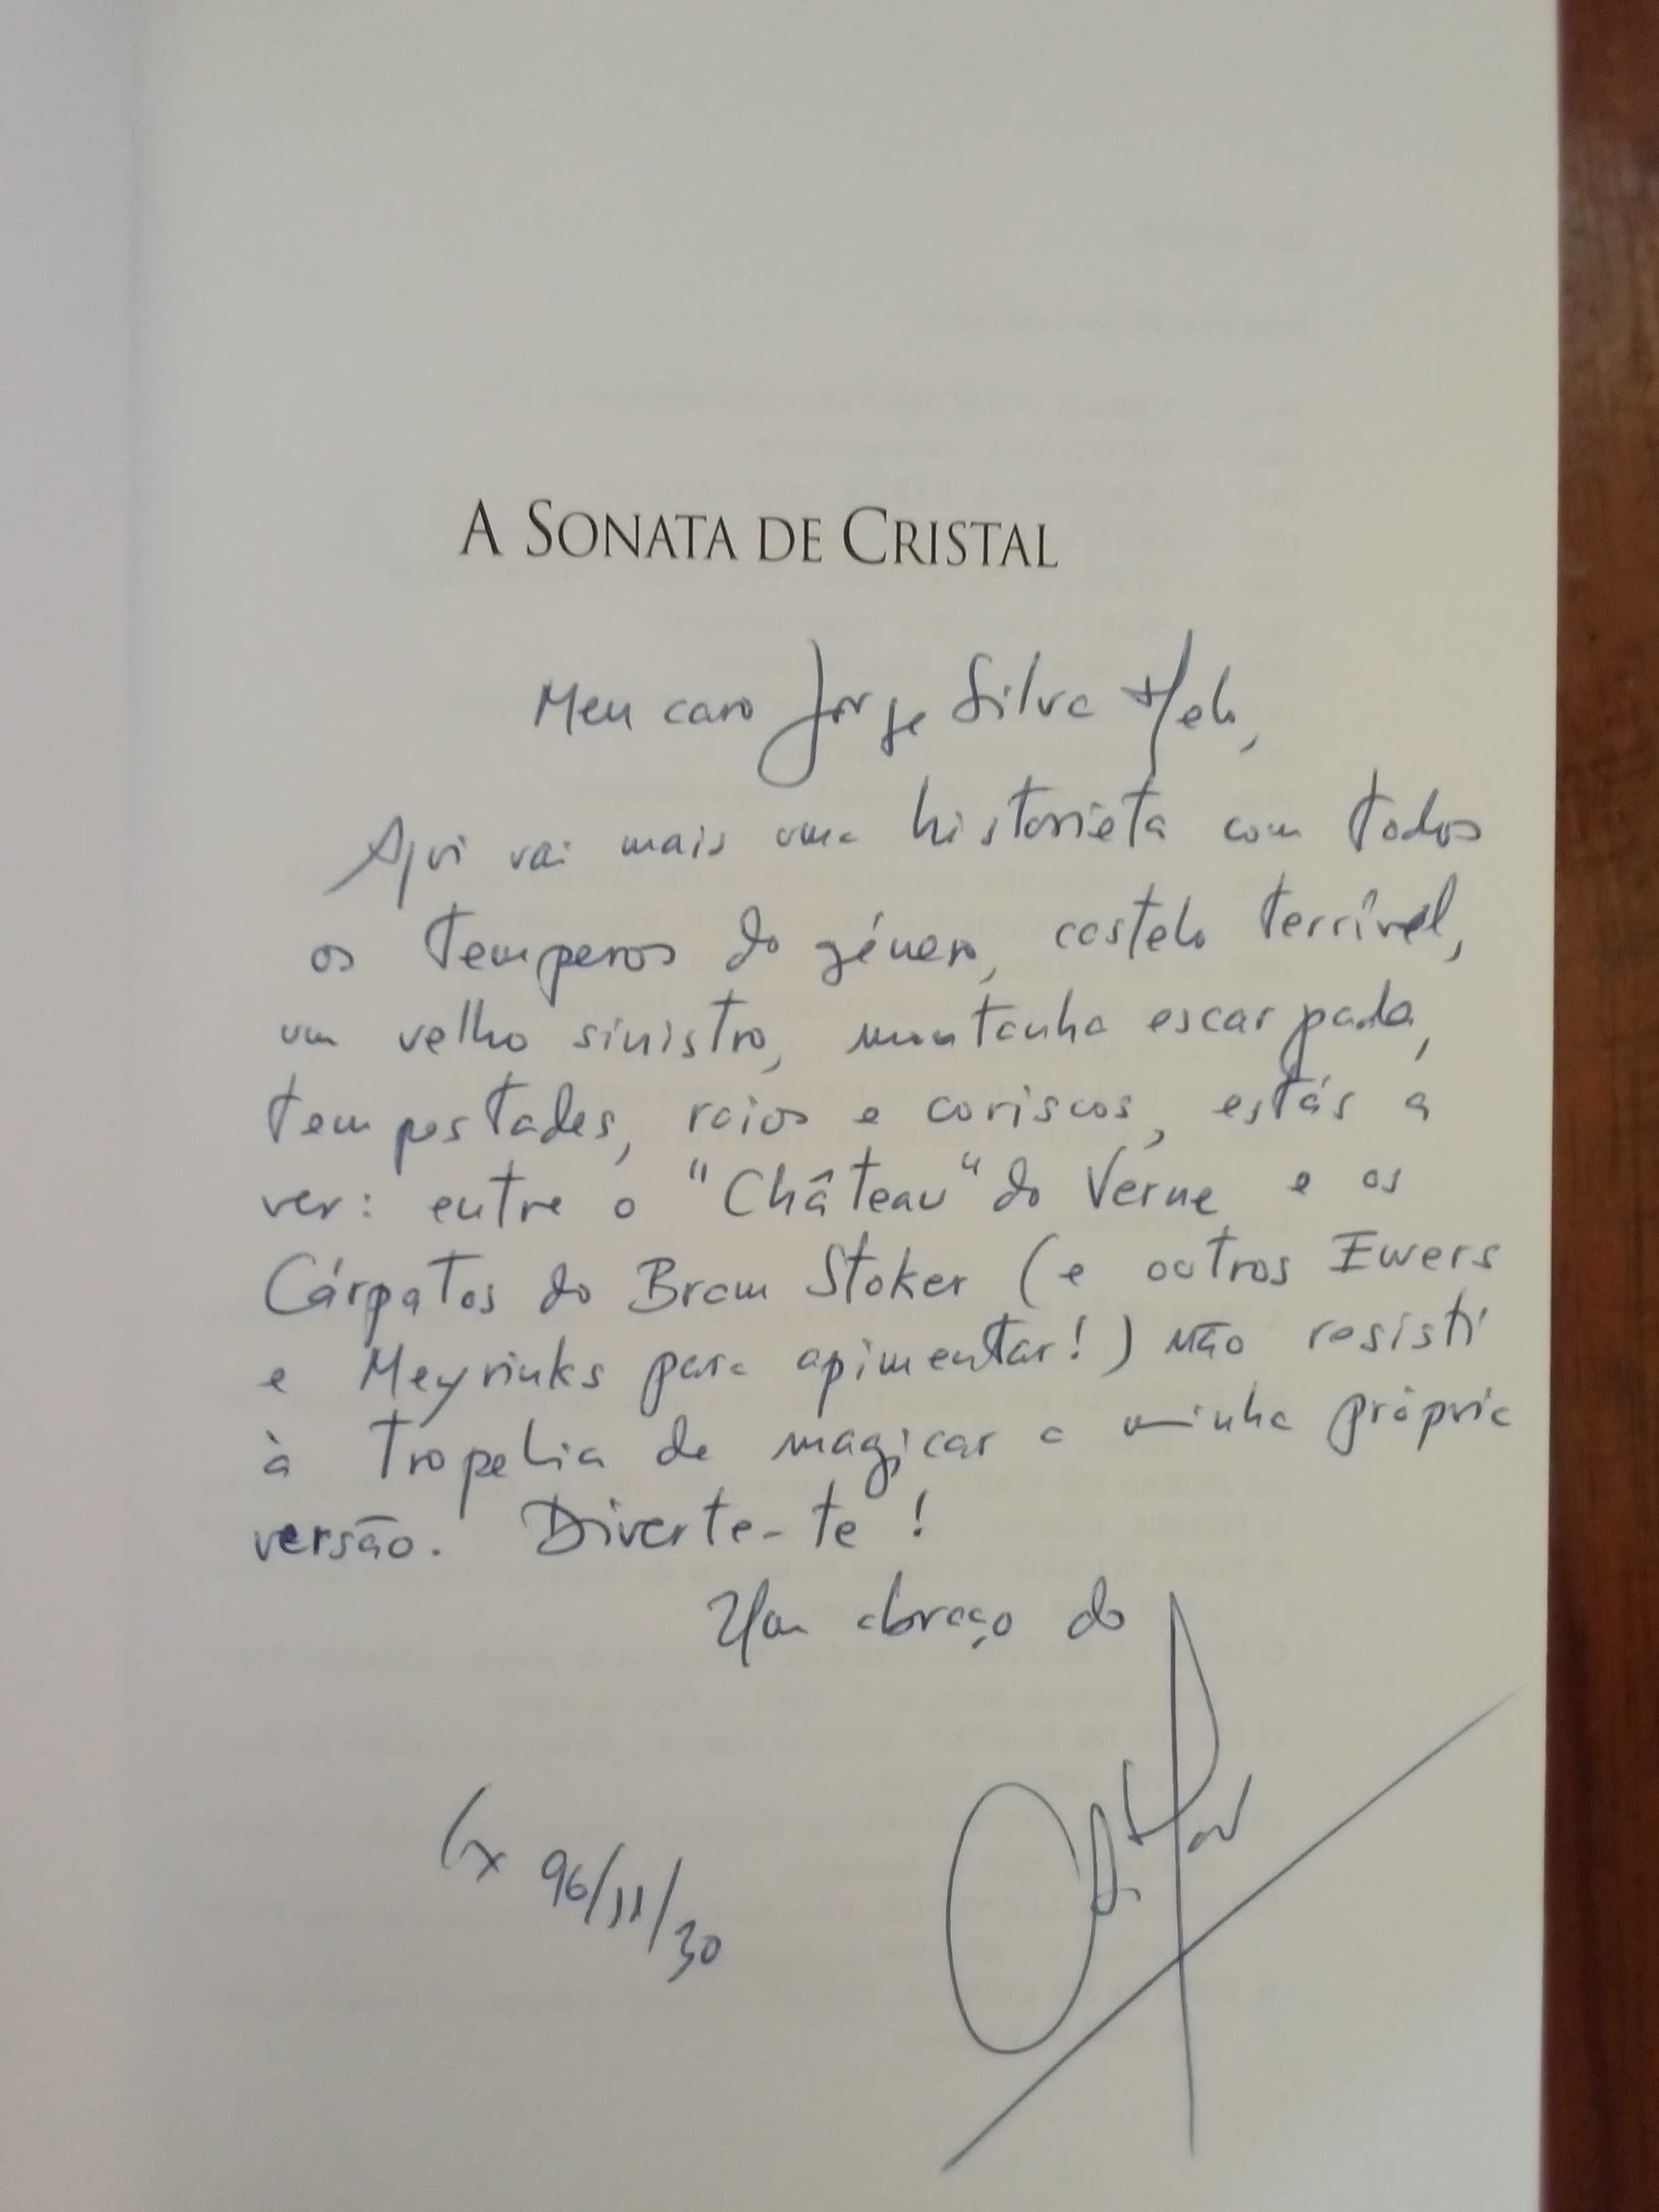 A SONATA DE CRISTAL
Meu caro Jorge Silva Melo,
Aqui vai mais uma historieta com todos
os temperos do género, castelo terrível,
um velho sinistro, montanha escarpada,
tempestades, raios e coriscos, estás a
ver: entre o "Château" do Verne e os
Cárpatos do Bram Stoker (e outros Ewers
e Meyrinks para apimentar!) não resisti
à tropelia de magicar a minha própria
versão. Diverte-te!
Um abraço do
Lx 96/11/30